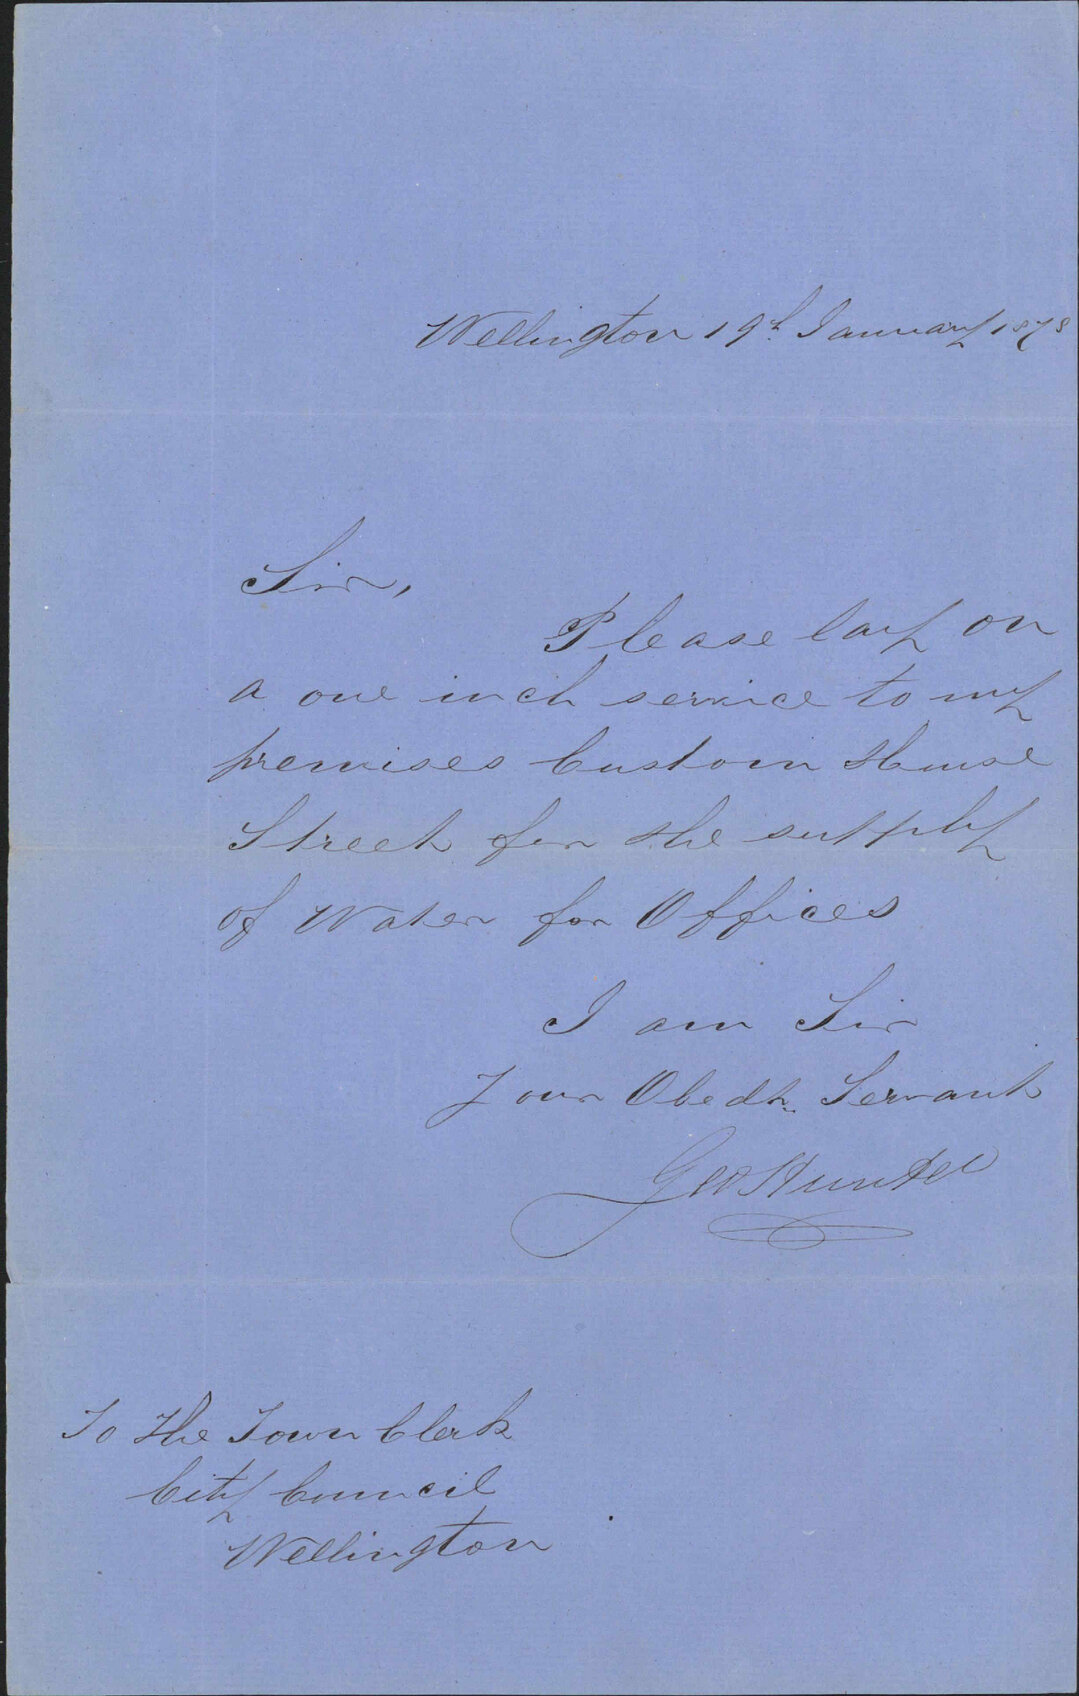 Wellington 19th January 1878
Sir,
Please lay on
a one inch service to my
premises Custom House
Street for the supply
of Water for Offices
I am Sir
Your Obedt. Servant
Geo Hunter
To the Town Clerk
City Council
Wellington